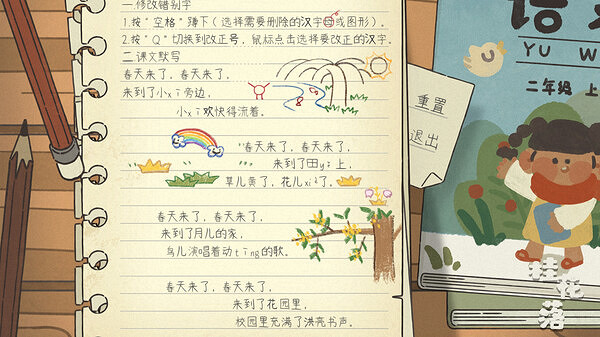 一.修改错别字
1.按"空格"蹲下(选择需要删除的汉字或图形).
2.按"Q"切换到改正号,鼠标点击选择要改正的汉字.
二.课文默写
春天来了,春天来了,
来到了小xī旁边,
小xī欢快得流着。
"春天来了,春天来了,
来到了田yě上,
草儿黄了,花儿xiè了。
春天来了,春天来了,
来到了月儿的家,
鸟儿演唱着动tīng的歌。
春天来了,春天来了,
来到了花园里,
校园里充满了洪亮书声。
重置
退出
YU W
二年级 上
花落